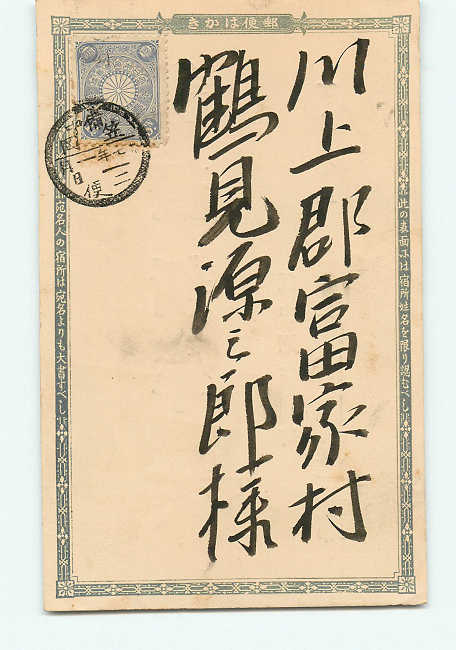 きかは便郵
川上郡富家村
鶴見源三郎様
此の表面には宿所姓名を限り認むべし
宛名人の宿所は宛名よりも大書すべし